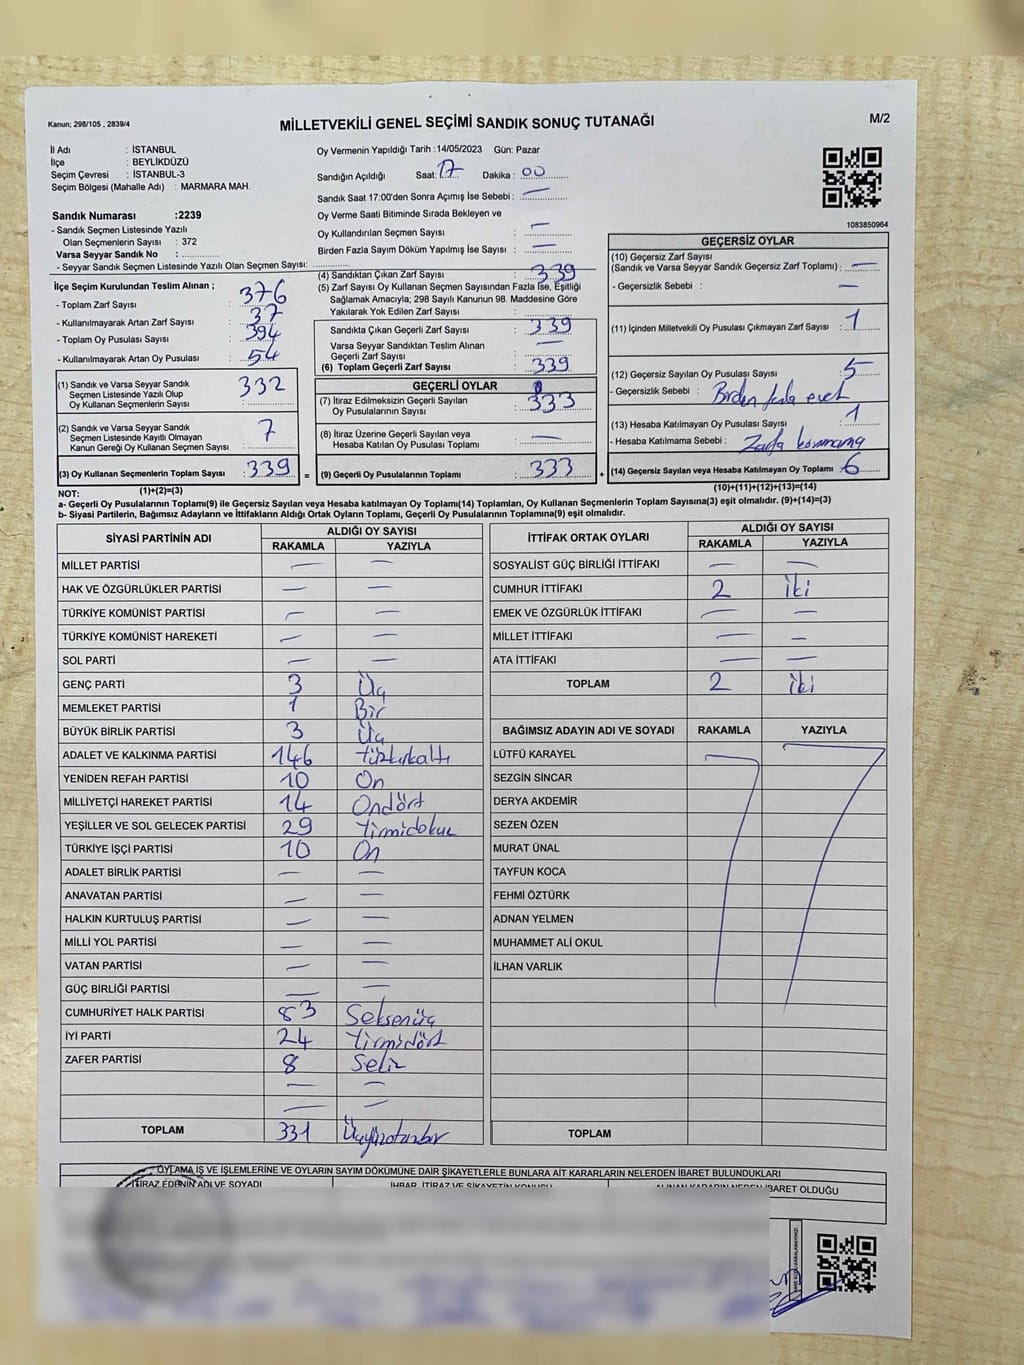 Kanun; 298/105 , 2839/4
MİLLETVEKİLİ GENEL SEÇİMİ SANDIK SONUÇ TUTANAĞI
M/2
İl Adı : İSTANBUL
İlçe : BEYLİKDÜZÜ
Seçim Çevresi : İSTANBUL-3
Seçim Bölgesi (Mahalle Adı) : MARMARA MAH.
Sandık Numarası :2239
- Sandık Seçmen Listesinde Yazılı
Olan Seçmenlerin Sayısı : 372
Varsa Seyyar Sandık No :
- Seyyar Sandık Seçmen Listesinde Yazılı Olan Seçmen Sayısı:
Oy Vermenin Yapıldığı Tarih :14/05/2023 Gün: Pazar
Sandığın Açıldığı Saat: 17 Dakika : 00
Sandık Saat 17:00'den Sonra Açımış İse Sebebi : —
Oy Verme Saati Bitiminde Sırada Bekleyen ve
Oy Kullandırılan Seçmen Sayısı : —
Birden Fazla Sayım Döküm Yapılmış İse Sayısı : —
1083850964
İlçe Seçim Kurulundan Teslim Alınan ;
- Toplam Zarf Sayısı : 376
- Kullanılmayarak Artan Zarf Sayısı : 37
- Toplam Oy Pusulası Sayısı : 394
- Kullanılmayarak Artan Oy Pusulası : 54
(1) Sandık ve Varsa Seyyar Sandık
Seçmen Listesinde Yazılı Olup
Oy Kullanan Seçmenlerin Sayısı : 332
(2) Sandık ve Varsa Seyyar Sandık
Seçmen Listesinde Kayıtlı Olmayan
Kanun Gereği Oy Kullanan Seçmen Sayısı : 7
(3) Oy Kullanan Seçmenlerin Toplam Sayısı : 339 =
(1)+(2)=(3)
(4) Sandıktan Çıkan Zarf Sayısı : 339
(5) Zarf Sayısı Oy Kullanan Seçmen Sayısından Fazla İse, Eşitliği
Sağlamak Amacıyla; 298 Sayılı Kanunun 98. Maddesine Göre
Yakılarak Yok Edilen Zarf Sayısı :
Sandıkta Çıkan Geçerli Zarf Sayısı : 339
Varsa Seyyar Sandıktan Teslim Alınan
Geçerli Zarf Sayısı : —
(6) Toplam Geçerli Zarf Sayısı : 339
GEÇERLİ OYLAR
(7) İtiraz Edilmeksizin Geçerli Sayılan
Oy Pusulalarının Sayısı : 333
(8) İtiraz Üzerine Geçerli Sayılan veya
Hesaba Katılan Oy Pusulası Toplamı : —
(9) Geçerli Oy Pusulalarının Toplamı : 333 +
GEÇERSİZ OYLAR
(10) Geçersiz Zarf Sayısı
(Sandık ve Varsa Seyyar Sandık Geçersiz Zarf Toplamı) : —
- Geçersizlik Sebebi : —
(11) İçinden Milletvekili Oy Pusulası Çıkmayan Zarf Sayısı : 1
(12) Geçersiz Sayılan Oy Pusulası Sayısı : 5
- Geçersizlik Sebebi : Birden fazla evet
(13) Hesaba Katılmayan Oy Pusulası Sayısı : 1
- Hesaba Katılmama Sebebi : Zarfa
(14) Geçersiz Sayılan veya Hesaba Katılmayan Oy Toplamı : 6
(10)+(11)+(12)+(13)=(14)
NOT:
a- Geçerli Oy Pusulalarının Toplamı(9) ile Geçersiz Sayılan veya Hesaba katılmayan Oy Toplamı(14) Toplamları, Oy Kullanan Seçmenlerin Toplam Sayısına(3) eşit olmalıdır. (9)+(14)=(3)
b- Siyasi Partilerin, Bağımsız Adayların ve İttifakların Aldığı Ortak Oyların Toplamı, Geçerli Oy Pusulalarının Toplamına(9) eşit olmalıdır.
SİYASİ PARTİNİN ADI ALDIĞI OY SAYISI
RAKAMLA YAZIYLA
MİLLET PARTİSİ — —
HAK VE ÖZGÜRLÜKLER PARTİSİ — —
TÜRKİYE KOMÜNİST PARTİSİ — —
TÜRKİYE KOMÜNİST HAREKETİ — —
SOL PARTİ — —
GENÇ PARTİ 3 Üç
MEMLEKET PARTİSİ 1 Bir
BÜYÜK BİRLİK PARTİSİ 3 Üç
ADALET VE KALKINMA PARTİSİ 146 Yüzkırkaltı
YENİDEN REFAH PARTİSİ 10 On
MİLLİYETÇİ HAREKET PARTİSİ 14 Ondört
YEŞİLLER VE SOL GELECEK PARTİSİ 29 Yirmidokuz
TÜRKİYE İŞÇİ PARTİSİ 10 On
ADALET BİRLİK PARTİSİ — —
ANAVATAN PARTİSİ — —
HALKIN KURTULUŞ PARTİSİ — —
MİLLİ YOL PARTİSİ — —
VATAN PARTİSİ — —
GÜÇ BİRLİĞİ PARTİSİ — —
CUMHURİYET HALK PARTİSİ 83 Seksenüç
İYİ PARTİ 24 Yirmidört
ZAFER PARTİSİ 8 Sekiz
— —
— —
TOPLAM 331 Üçyüzotuzbir
İTTİFAK ORTAK OYLARI ALDIĞI OY SAYISI
RAKAMLA YAZIYLA
SOSYALİST GÜÇ BİRLİĞİ İTTİFAKI — —
CUMHUR İTTİFAKI 2 İki
EMEK VE ÖZGÜRLÜK İTTİFAKI — —
MİLLET İTTİFAKI — —
ATA İTTİFAKI — —
TOPLAM 2 İki
BAĞIMSIZ ADAYIN ADI VE SOYADI RAKAMLA YAZIYLA
LÜTFÜ KARAYEL
SEZGİN SİNCAR
DERYA AKDEMİR
SEZEN ÖZEN
MURAT ÜNAL
TAYFUN KOCA
FEHMİ ÖZTÜRK
ADNAN YELMEN
MUHAMMET ALİ OKUL
İLHAN VARLIK
TOPLAM
OYLAMA İŞ VE İŞLEMLERİNE VE OYLARIN SAYIM DÖKÜMÜNE DAİR ŞİKAYETLERLE BUNLARA AİT KARARLARIN NELERDEN İBARET BULUNDUKLARI
İTİRAZ EDENİN ADI VE SOYADI İHBAR, İTİRAZ VE ŞİKAYETİN KONUSU ALINAN KARARIN NEDEN İBARET OLDUĞU